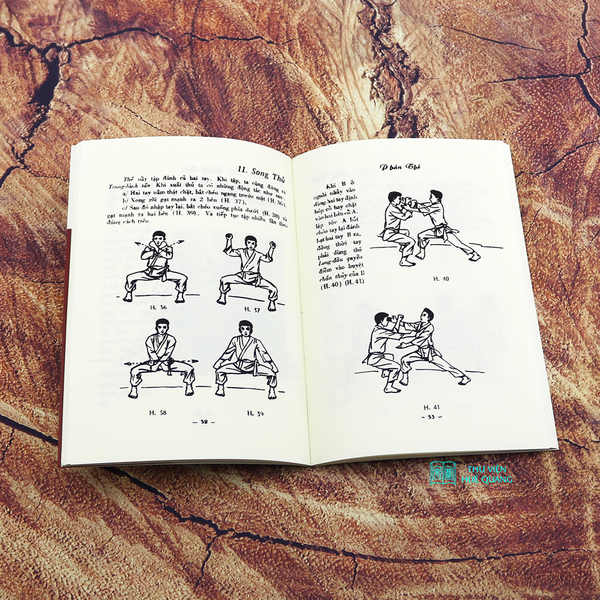 11. Song Thủ
Thế nầy tập đánh cả hai tay. Khi tập, ta cũng đứng ra
Trung-bình tấn. Khi xuất thủ ta có những động tác như sau:
a/ Hai tay nắm thật chặt, bắt chéo ngang trước mặt (H. 36)
b/ Xong rồi gạt mạnh ra 2 bên (H. 37).
c/ Sau đó nhập tay lại, bắt chéo xuống phía dưới (H. 38) và
gạt mạnh ra hai bên (H. 39). Và tiếp tục tập nhiều lần theo
đúng cách trên.
H. 36
H. 37
H. 38
H. 39
— 52 —
Phân Thế
Khi B ở
người nhảy vào
dùng hai tay định
bóp cổ hay chặt
vào hai bên cổ A.
lập tức A bắt
chéo tay lại đánh
bạt hai tay B ra,
đồng thời tay
phải dùng thế
Long-đầu quyền
điểm vào huyệt
của B
(H. 40) (H. 41)
H. 40
H. 41
— 53 —
THƯ VIỆN
HUỆ QUANG